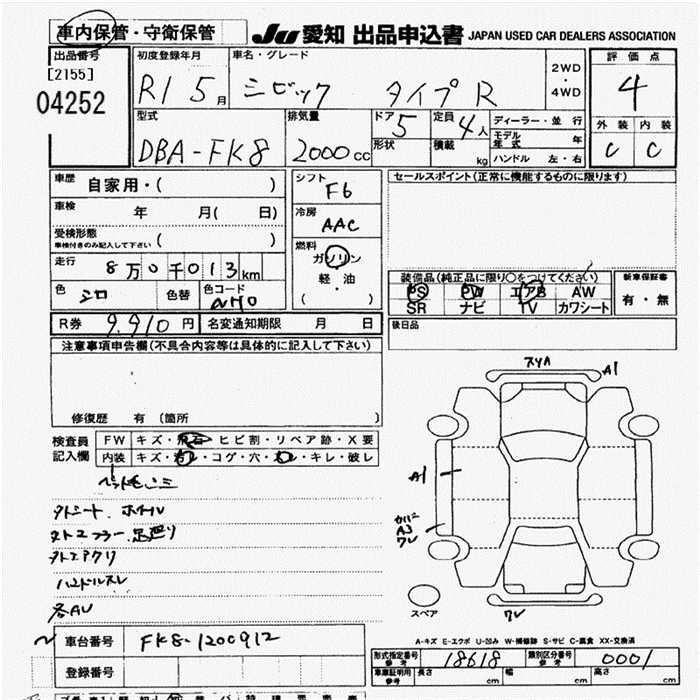 車内保管・守衛保管
JU 愛知 出品申込書 JAPAN USED CAR DEALERS ASSOCIATION
出品番号
[2155]
04252
初度登録年月
R1 5月
車名・グレード
シビック タイプR
2WD
・
4WD
評価点
4
外装 内装
C C
型式
DBA-FK8
排気量
2000cc
ドア
5
形状
定員
4人
積載
kg
ディーラー・並行
モデル年式 年
ハンドル 左・右
車歴
自家用・( )
シフト
F6
セールスポイント(正常に機能するものに限ります)
車検
年 月( 日)
冷房
AAC
受検形態
車検付きのみ記入して下さい ( )
燃料
ガソリン
軽・油
・
( )
走行
8万0千013km
色
シロ
色替
色コード
NH0
装備品(純正品に限り○をつけてください)
PS PW エアB AW
SR ナビ TV カワシート
新車保証書
有・無
R券
9,910円
名変通知期限 月 日
後日品
注意事項申告欄(不具合内容等は具体的に記入して下さい)
修復歴 有(箇所
検査員
記入欄
FW
キズ・飛石・ヒビ割・リペア跡・X要
内装
キズ・汚レ・コゲ・穴・スレ・キレ・破レ
ソトシート、ホイル
ソトマフラー、足廻り
ソトエアクリ
ハンドルスレ
各AU
スリA
A1
A1
カバー
A3
ワレ
スペア
ワレ
A-キズ E-エクボ U-凹み W-補修跡 S-サビ C-腐食 XX-交換済
車台番号
FK8-1200912
登録番号
形式指定番号
参考
18618
類別区分番号
参考
0001
車庫証明用
参考
長さ cm
幅 cm
高さ cm